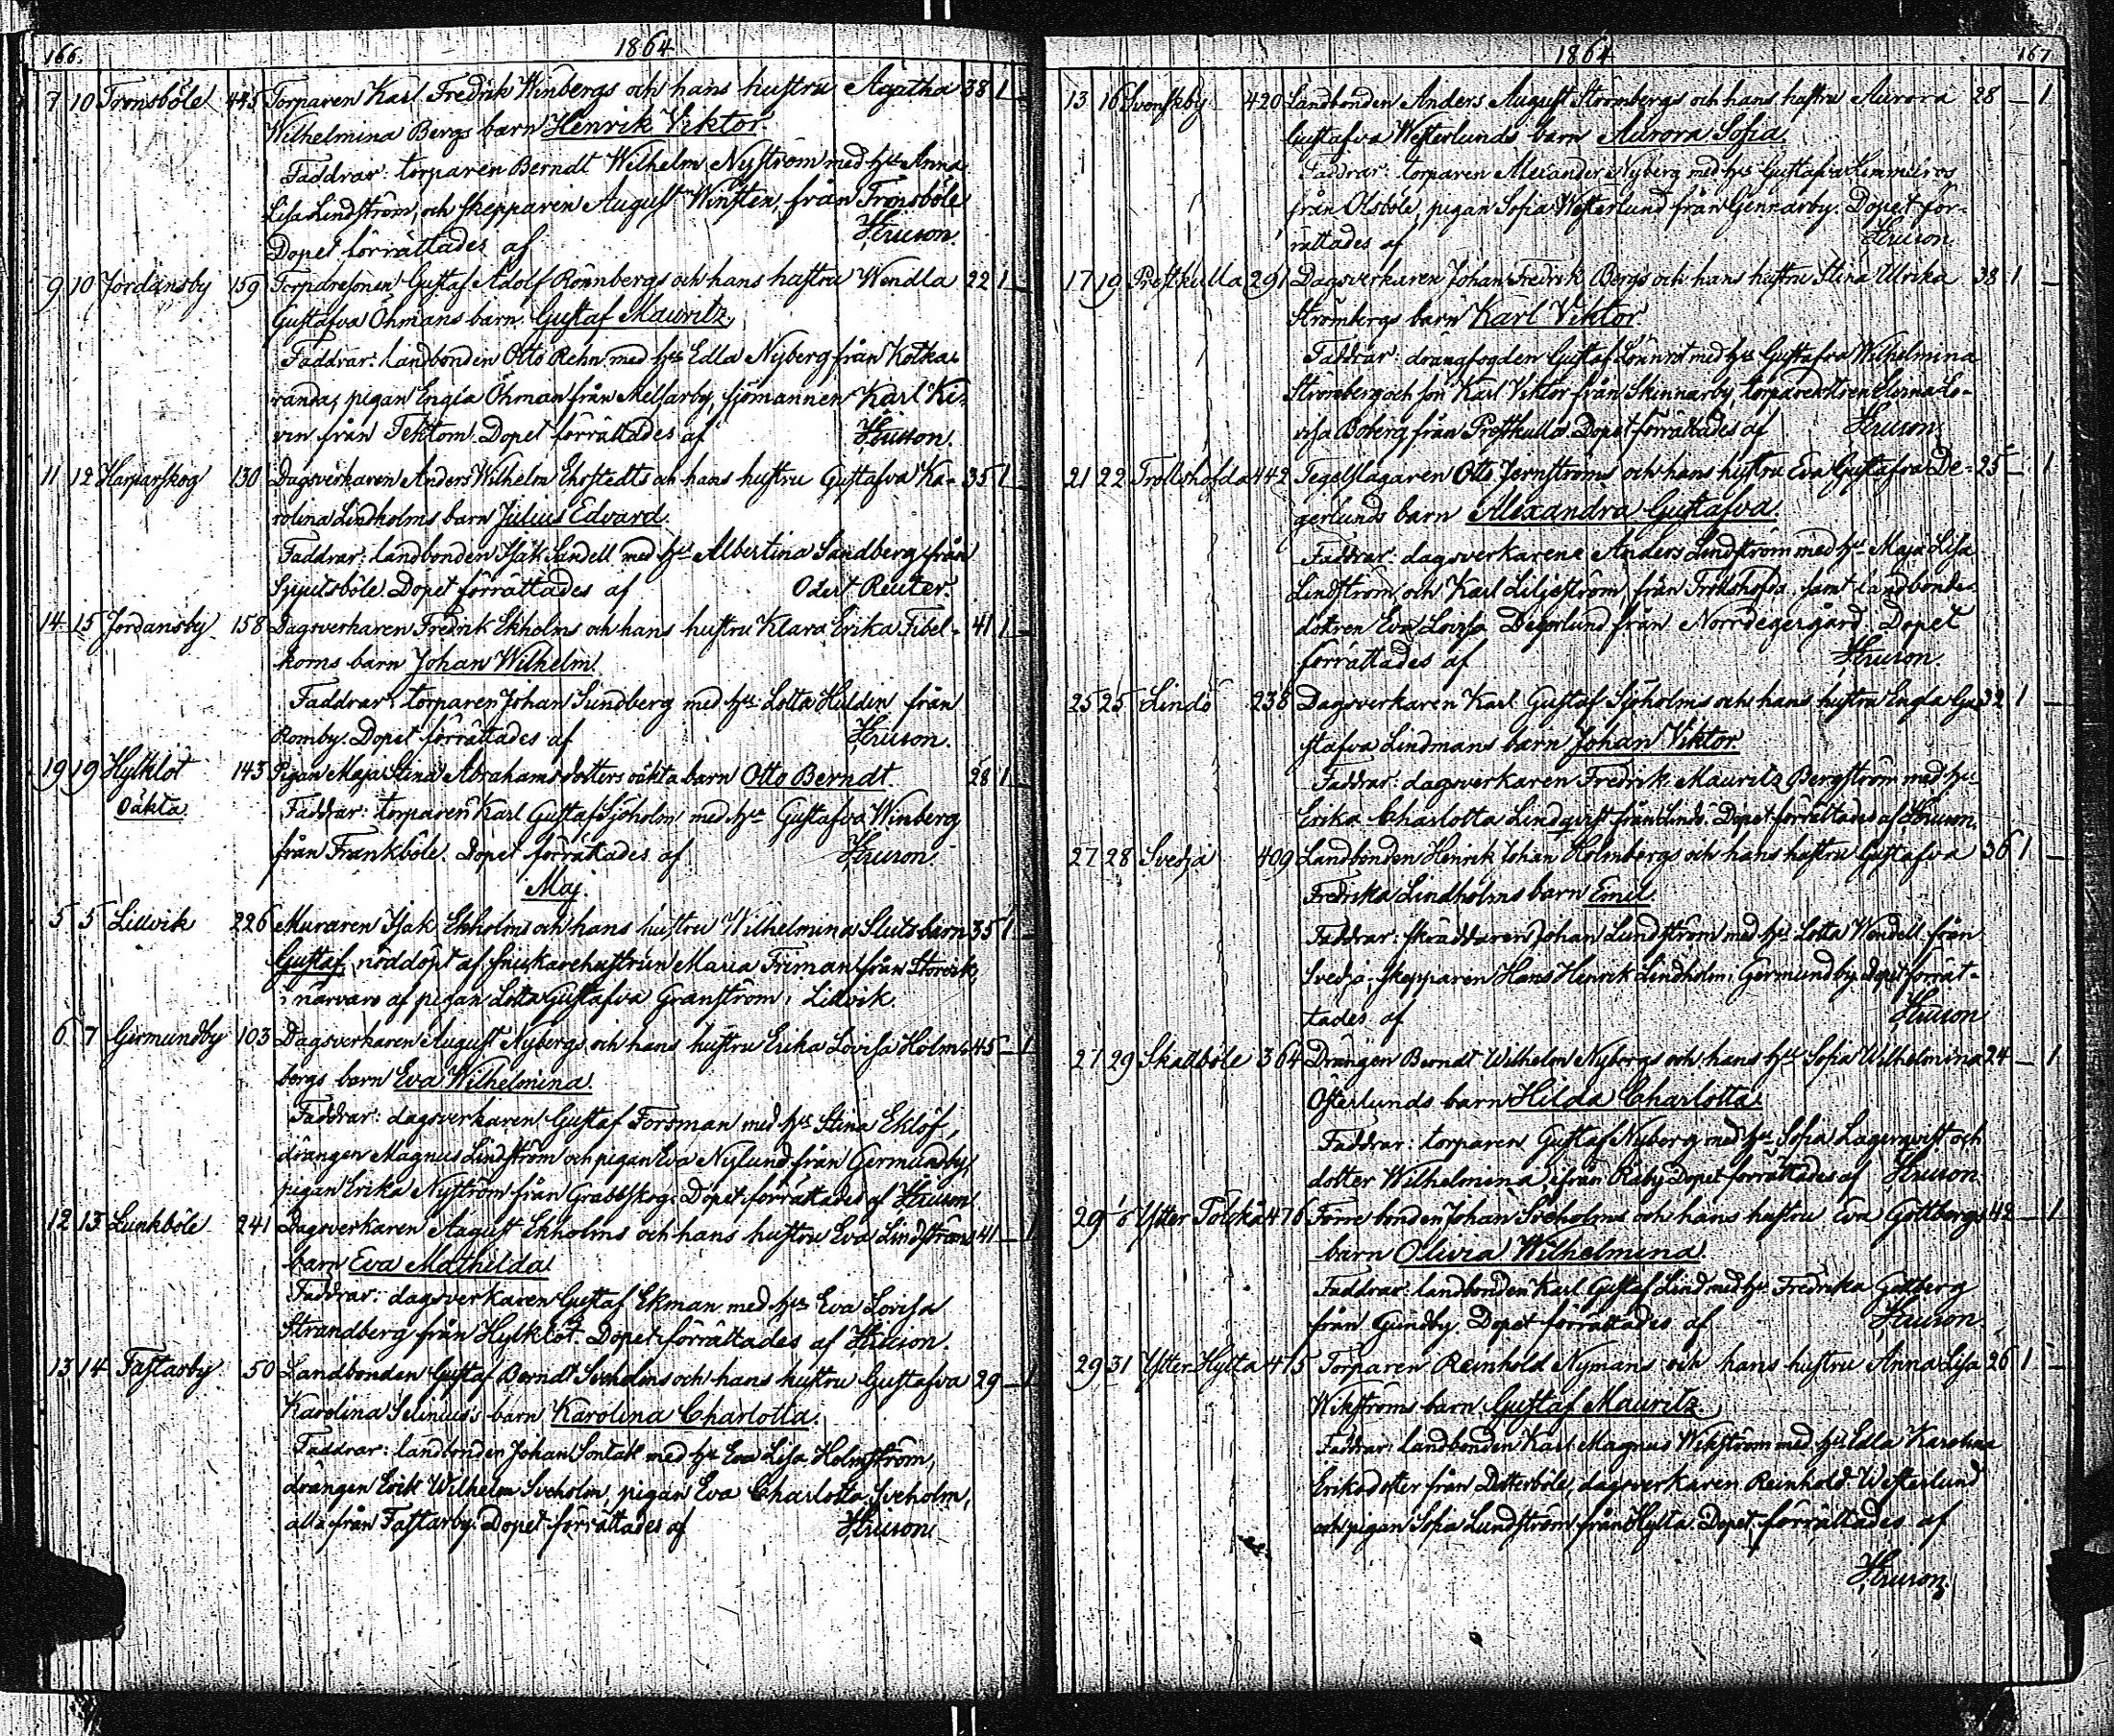 166. 1864
7 10 Tronsböle 445 Torparen Karl Fredrik Winbergs och hans hustru Agatha 38 1 –
Wilhelmina Bergs barn Henrik Viktor.
Faddrar: torparen Berndt Wilhelm Nyström med hu Anna
Lisa Lindström, och skepparen August Winsten, från Tronsböle
Dopet förrättades af
9 10 Jordansby 159 Gustaf Adolf Rönnbergs och hans hustru Wendla 22 1 –
Gustafva Öhmans barn Gustaf Mauritz.
Faddrar: landbonden Otto Rehn med hu Edla Nyberg från Kotka-
randa, pigan Engla Öhman från Melsarby, sjömannen Karl Ki-
vin från Tektom. Dopet förrättades af
11 12 Harparskog 130 Dagsverkaren Anders Wilhelm Ekstedts och hans hustru Gustafva Ka- 35 1 –
rolina Lindholms barn Julius Edvard.
Faddrar: landbonden Isak Sandell med hu Albertina Sandberg från
Spjutsböle. Dopet förrättades af Odert Reuter.
14 15 Jordansby 158 Dagsverkaren Fredrik Ekholms och hans hustru Klara Erika Fibel- 41 1 –
korns barn Johan Wilhelm.
Faddrar: torparen Johan Sundberg med hu Lotta Huldin från
Romby. Dopet förrättades af
19 19 Hylklot 143 Pigan Maja Stina Abrahamsdotters oäkta barn Otto Berndt. 28 1 –
Oäkta. Faddrar: torparen Karl Gustaf Sjöholm med hu Gustafva Winberg
från Frankböle. Dopet förrättades af
Maj.
5 5 Lillvik 226 Muraren Isak Ekholms och hans hustru Wilhelmina Sluts barn 35 1 –
Gustaf, nöddöpt af snickarehustrun Maria Friman från Storvik,
i närvaro af pigan Lotta Gustafva Granström i Lillvik.
6 7 Germundby 103 Dagsverkaren August Nybergs och hans hustru Erika Lovisa Holm- 45 – 1
bergs barn Eva Wilhelmina.
Faddrar: dagsverkaren Gustaf Forsman med hu Stina Eklöf,
drängen Magnus Lindström och pigan Eva Nylund från Germundby,
pigan Erika Nyström från Grabbskog. Dopet förrättades af
12 13 Lunkböle 241 Dagsverkaren August Ekholms och hans hustru Eva Lindströms 41 – 1
barn Eva Mathilda.
Faddrar: dagsverkaren Gustaf Ekman med hu Eva Lovisa
Strandberg från Hylklot. Dopet förrättades af
13 14 Fastarby 50 Landbonden Gustaf Berndt Sveholms och hans hustru Gustafva 29 – 1
Karolina Selinius's barn Karolina Charlotta.
Faddrar: landbonden Johan Sontak med hu Eva Lisa Holmström,
drängen Erik Wilhelm Sveholm, pigan Eva Charlotta Sveholm,
alla från Fastarby. Dopet förrättades af
1864 167
13 16 Svenskby 420 Landbonden Anders August Strömbergs och hans hustru Aurora 28 – 1
Gustafva Westerlunds barn Aurora Sofia.
Faddrar: torparen Alexander Nyberg med hu Gustafva
från Olsböle, pigan Sofia Westerlund från Gennarby. Dopet för-
rättades af
17 19 Prestkulla 291 Dagsverkaren Johan Fredrik Bergs och hans hustru Stina Ulrika 38 1 –
Strömbergs barn Karl Viktor.
Faddrar: drängfogden Gustaf Lönnrot med hu Gustafva Wilhelmina
Strömberg och son Karl Viktor från Skinnarby, Lo-
visa Boberg från Prestkulla. Dopet förrättades af
21 22 Trollshofda 442 Tegelslagaren Otto Jernströms och hans hustru Eva Gustafva De- 25 – 1
gerlunds barn Alexandra Gustafva.
Faddrar: dagsverkarene Anders Lindström med hu Maja Lisa
Lindström och Karl Liljeström från Trollshofda, samt landbonde-
dottren Eva Lovisa Degerlund från Norrdegergård. Dopet
förrättades af
25 25 Lindö 238 Dagsverkaren Karl Gustaf Sjöholms och hans hustru Engla Gu- 32 1 –
stafva Lindmans barn Johan Viktor.
Faddrar: dagsverkaren Fredrik Mauritz Bergström med hu
Erika Charlotta Lindqvist från Lindö. Dopet förrättades af
27 28 Svedja 409 Landbonden Henrik Johan Holmbergs och hans hustru Gustafva 36 1 –
Fredrika Lindholms barn Emil.
Faddrar: skräddaren Johan Lundström med hu Lotta Wendell från
Svedja, skepparen Hans Henrik Lindholm, Germundby. Dopet förrät-
tades af
27 29 Skallböle 364 Drängen Berndt Wilhelm Nybergs och hans hu Sofia Wilhelmina 24 – 1
Österlunds barn Hilda Charlotta.
Faddrar: torparen Gustaf Nyberg med hu Sofia Lagerqvist och
dotter Wilhelmina ifrån Råby. Dopet förrättades af
29 Ytter Tolska 476 Förre bonden Johan Sveholms och hans hustru Eva Gottbergs 42 – 1
barn Olivia Wilhelmina.
Faddrar: landbonden Karl Gustaf Lind med hu Fredrika Gottberg
från Gundby. Dopet förrättades af
29 31 Ytter Hylta 475 Torparen Reinhold Nymans och hans hustru Anna Lisa 26 1 –
Wikströms barn Gustaf Mauritz.
Faddrar: landbonden Karl Magnus Wikström med hu Edla Karolina
Eriksdotter från Dotterböle, dagsverkaren Reinhold Westerlund
och pigan Sofia Lundström från Hylta. Dopet förrättades af